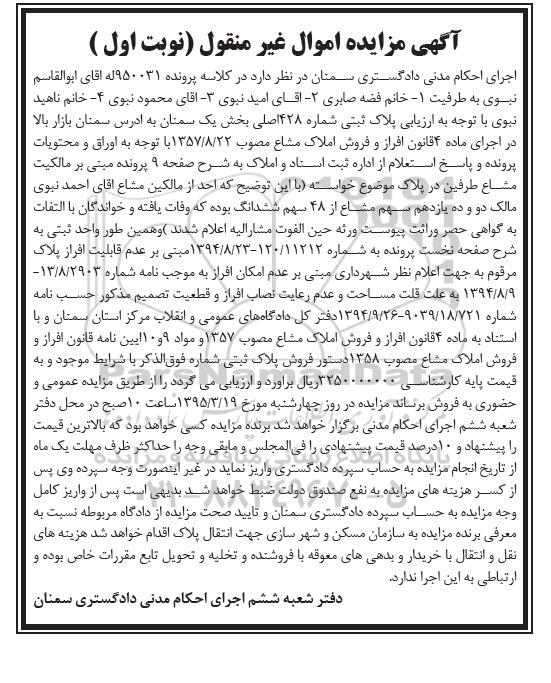 آگهی مزایده اموال غیر منقول (نوبت اول )
اجرای احکام مدنی دادگستری سمنان در نظر دارد در کلاسه پرونده ۹۵۰۰۳۱له اقای ابوالقاسم
نبوی به طرفیت ۱- خانم فضه صابری ۲- اقای امید نبوی ۳- اقای محمود نبوی ۴- خانم ناهید
نبوی با توجه به ارزیابی پلاک ثبتی شماره ۴۲۸اصلی بخش یک سمنان به ادرس سمنان بازار بالا
در اجرای ماده ۴قانون افراز و فروش املاک مشاع مصوب ۱۳۵۷/۸/۲۲با توجه به اوراق و محتویات
پرونده و پاسخ استعلام از اداره ثبت اسناد و املاک به شرح صفحه ۹ پرونده مبنی بر مالکیت
مشاع طرفین در پلاک موضوع خواسته (با این توضیح که احد از مالکین مشاع اقای احمد نبوی
مالک دو و ده یازدهم سهم مشاع از ۴۸ سهم ششدانگ بوده که وفات یافته و خواندگان با التفات
به گواهی حصر وراثت پیوست ورثه حین الفوت مشارالیه اعلام شدند )وهمین طور واحد ثبتی به
شرح صفحه نخست پرونده به شماره ۱۲۰/۱۱۲۱۲-۱۳۹۴/۸/۲۳مبنی بر عدم قابلیت افراز پلاک
مرقوم به جهت اعلام نظر شهرداری مبنی بر عدم امکان افراز به موجب نامه شماره ۱۳/۸/۲۹۰۳-
۱۳۹۴/۸/۹ به علت قلت مساحت و عدم رعایت نصاب افراز و قطعیت تصمیم مذکور حسب نامه
شماره ۹۰۳۹/۱۸/۷۲۱-۱۳۹۴/۹/۲۶دفتر کل دادگاههای عمومی و انقلاب مرکز استان سمنان و با
استناد به ماده ۴قانون افراز و فروش املاک مشاع مصوب ۱۳۵۷و مواد ۹و۱۰ایین نامه قانون افراز و
فروش املاک مشاع مصوب ۱۳۵۸دستور فروش پلاک ثبتی شماره فوق‌الذکر با شرایط موجود و به
قیمت پایه کارشناسی ۳۲۵۰۰۰۰۰۰۰ریال براورد و ارزیابی می گردد را از طریق مزایده عمومی و
حضوری به فروش برساند مزایده در روز چهارشنبه مورخ ۱۳۹۵/۳/۱۹ساعت ۱۰صبح در محل دفتر
شعبه ششم اجرای احکام مدنی برگزار خواهد شد برنده مزایده کسی خواهد بود که بالاترین قیمت
را پیشنهاد و ۱۰درصد قیمت پیشنهادی را فی‌المجلس و مابقی وجه را حداکثر ظرف مهلت یک ماه
از تاریخ انجام مزایده به حساب سپرده دادگستری واریز نماید در غیر اینصورت وجه سپرده وی پس
از کسر هزینه های مزایده به نفع صندوق دولت ضبط خواهد شد بدیهی است پس از واریز کامل
وجه مزایده به حساب سپرده دادگستری سمنان و تایید صحت مزایده از دادگاه مربوطه نسبت به
معرفی برنده مزایده به سازمان مسکن و شهر سازی جهت انتقال پلاک اقدام خواهد شد هزینه های
نقل و انتقال با خریدار و بدهی های معوقه با فروشنده و تخلیه و تحویل تابع مقررات خاص بوده و
ارتباطی به این اجرا ندارد.
دفتر شعبه ششم اجرای احکام مدنی دادگستری سمنان
ParsNamadData
۰۲۱-۸۸۳۴۹۶۷۰-۵